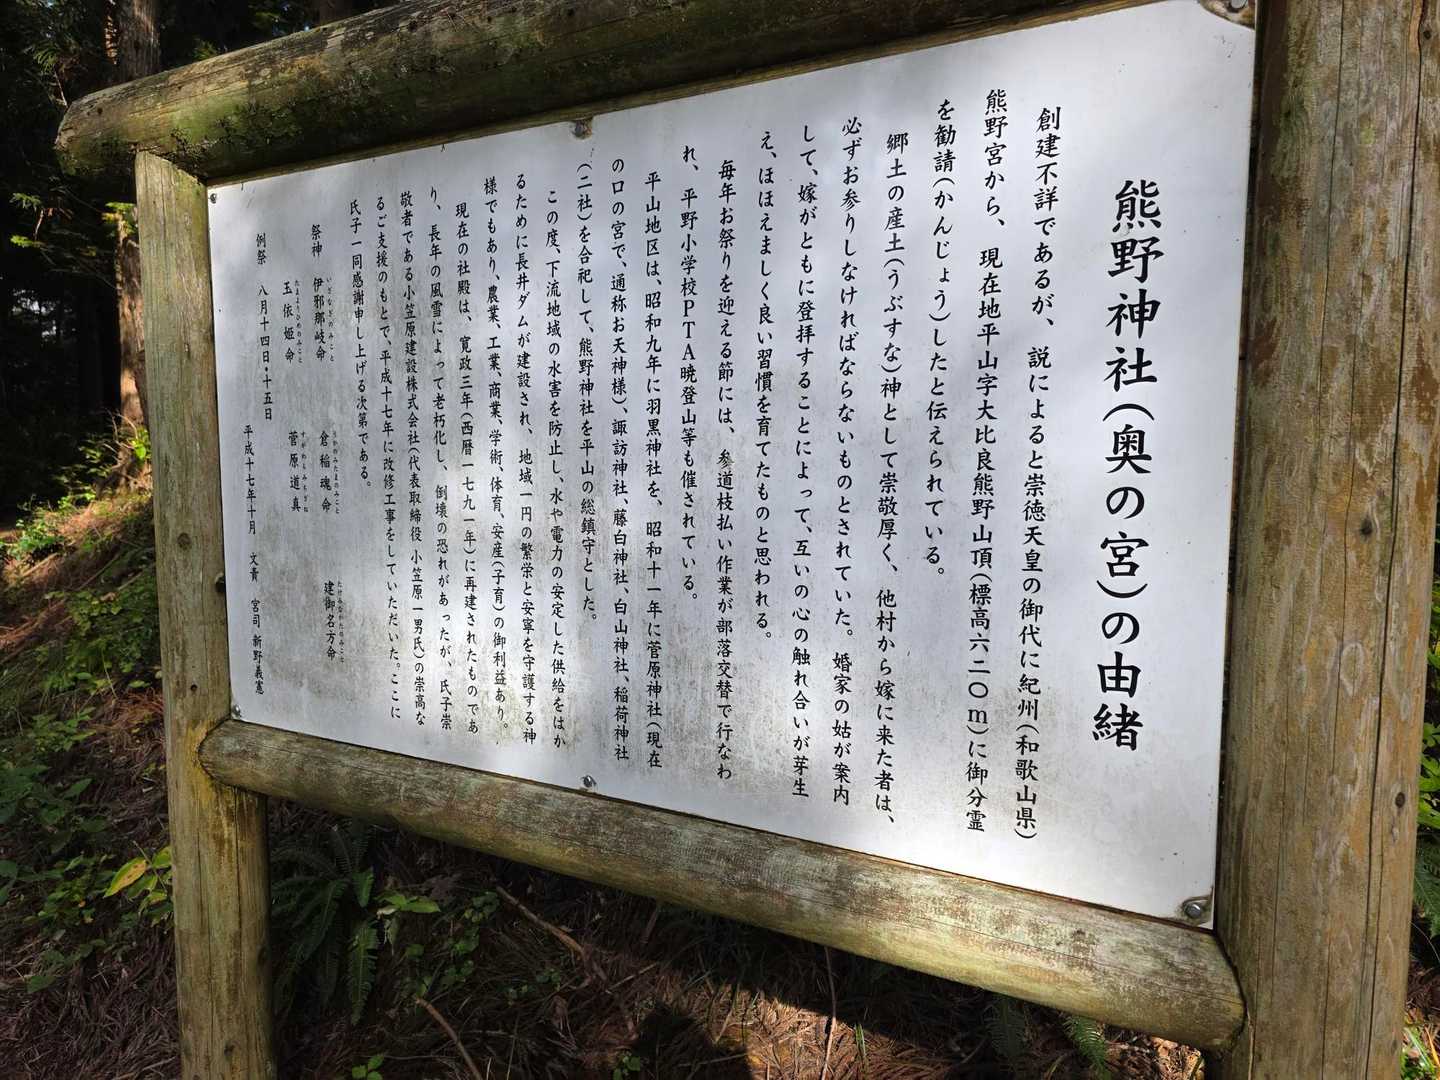 熊野神社(奥の宮)の由緒
創建不詳であるが、説によると崇徳天皇の御代に紀州(和歌山県)
熊野宮から、現在地平山字大比良熊野山頂(標高六二〇m)に御分霊
を勧請(かんじょう)したと伝えられている。
郷土の産土(うぶすな)神として崇敬厚く、他村から嫁に来た者は、
必ずお参りしなければならないものとされていた。婚家の姑が案内
して、嫁がともに登拝することによって、互いの心の触れ合いが芽生
え、ほほえましく良い習慣を育てたものと思われる。
毎年お祭りを迎える節には、参道枝払い作業が部落交替で行なわ
れ、平野小学校PTA暁登山等も催されている。
平山地区は、昭和九年に羽黒神社を、昭和十一年に菅原神社(現在
の口の宮で、通称お天神様)、諏訪神社、藤白神社、白山神社、稲荷神社
(二社)を合祀して、熊野神社を平山の総鎮守とした。
この度、下流地域の水害を防止し、水や電力の安定した供給をはか
るために長井ダムが建設され、地域一円の繁栄と安寧を守護する神
様でもあり、農業、工業、商業、学術、体育、安産(子育)の御利益あり。
現在の社殿は、寛政三年(西暦一七九一年)に再建されたものであ
り、長年の風雪によって老朽化し、倒壊の恐れがあったが、氏子崇
敬者である小笠原建設株式会社(代表取締役 小笠原一男氏)の崇高な
るご支援のもとで、平成十七年に改修工事をしていただいた。ここに
氏子一同感謝申し上げる次第である。
祭神 伊邪那岐命 倉稲魂命 建御名方命
玉依姫命 菅原道真
例祭 八月十四日・十五日
平成十七年十月 文責 宮司 新野義憲